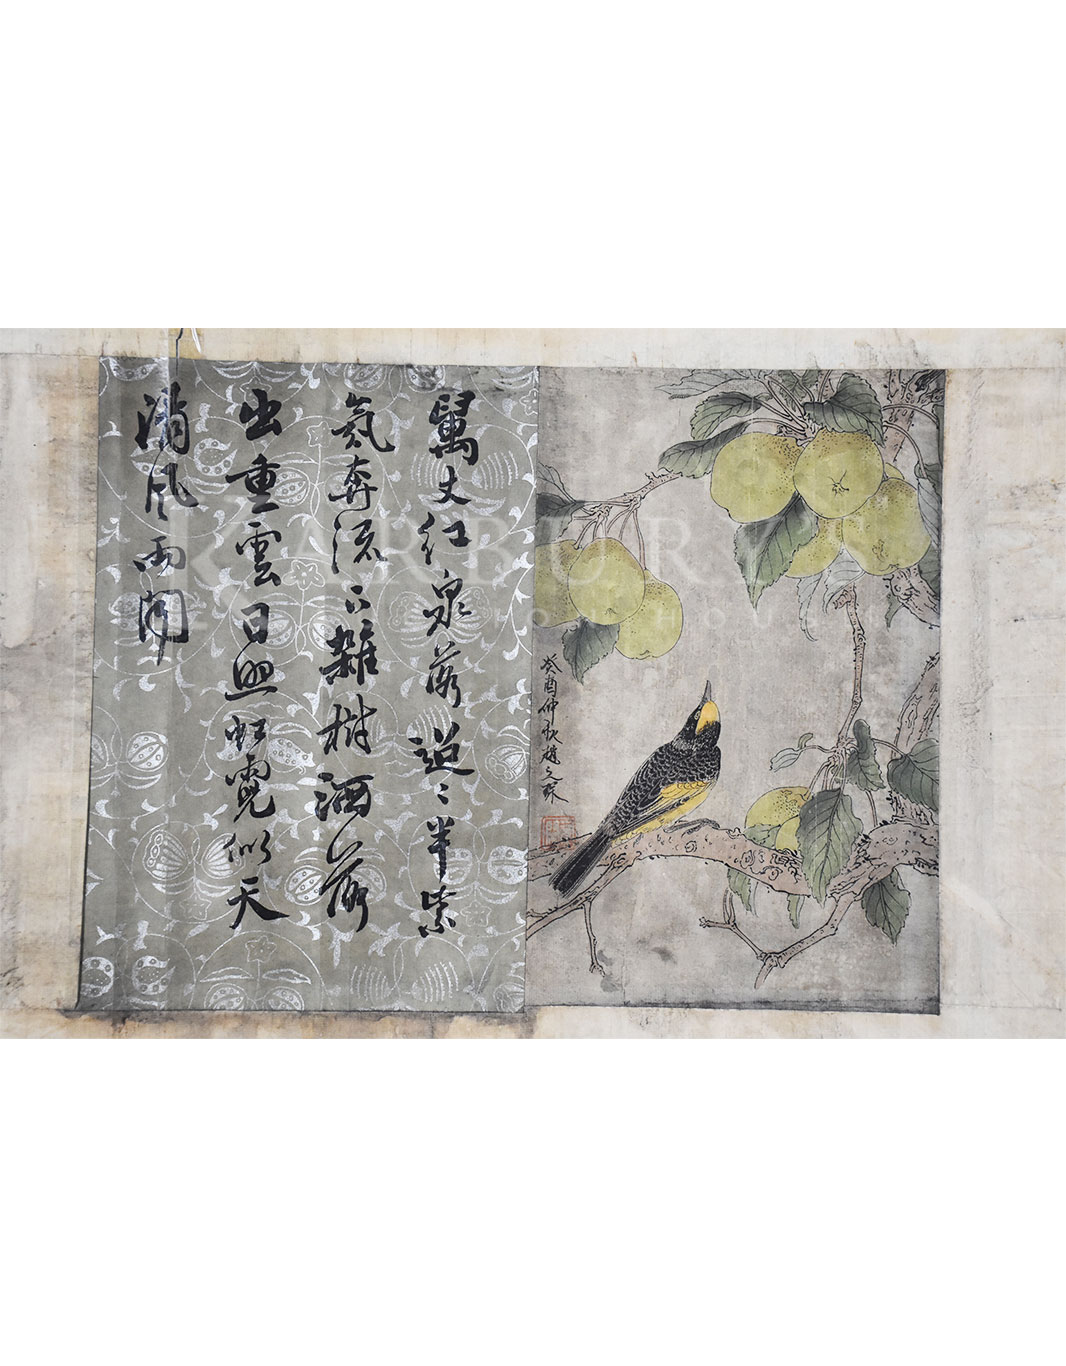 癸酉仲秋趙文
萬丈紅泉落迢〻半紫
氛奔流下雜樹洒落
出重雲日照虹霓似天
清風雨聞